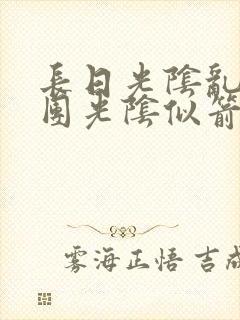 長日光陰亂
園光陰似箭
雾海正悟 吉成